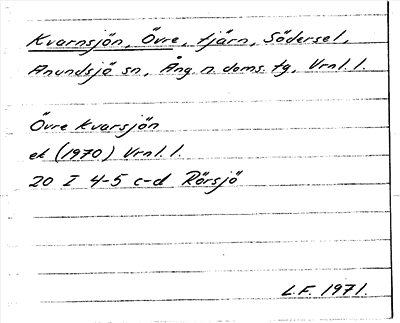 Kvarnsjön, Övre, tjärn, Södersel,
Anundsjö sn, Ång. n. doms. tg, Vrnl. l.
Övre Kvarsjön
ek (1970) Vrnl. l.
20 I 4-5 c-d Rörsjö
L.F. 1971.